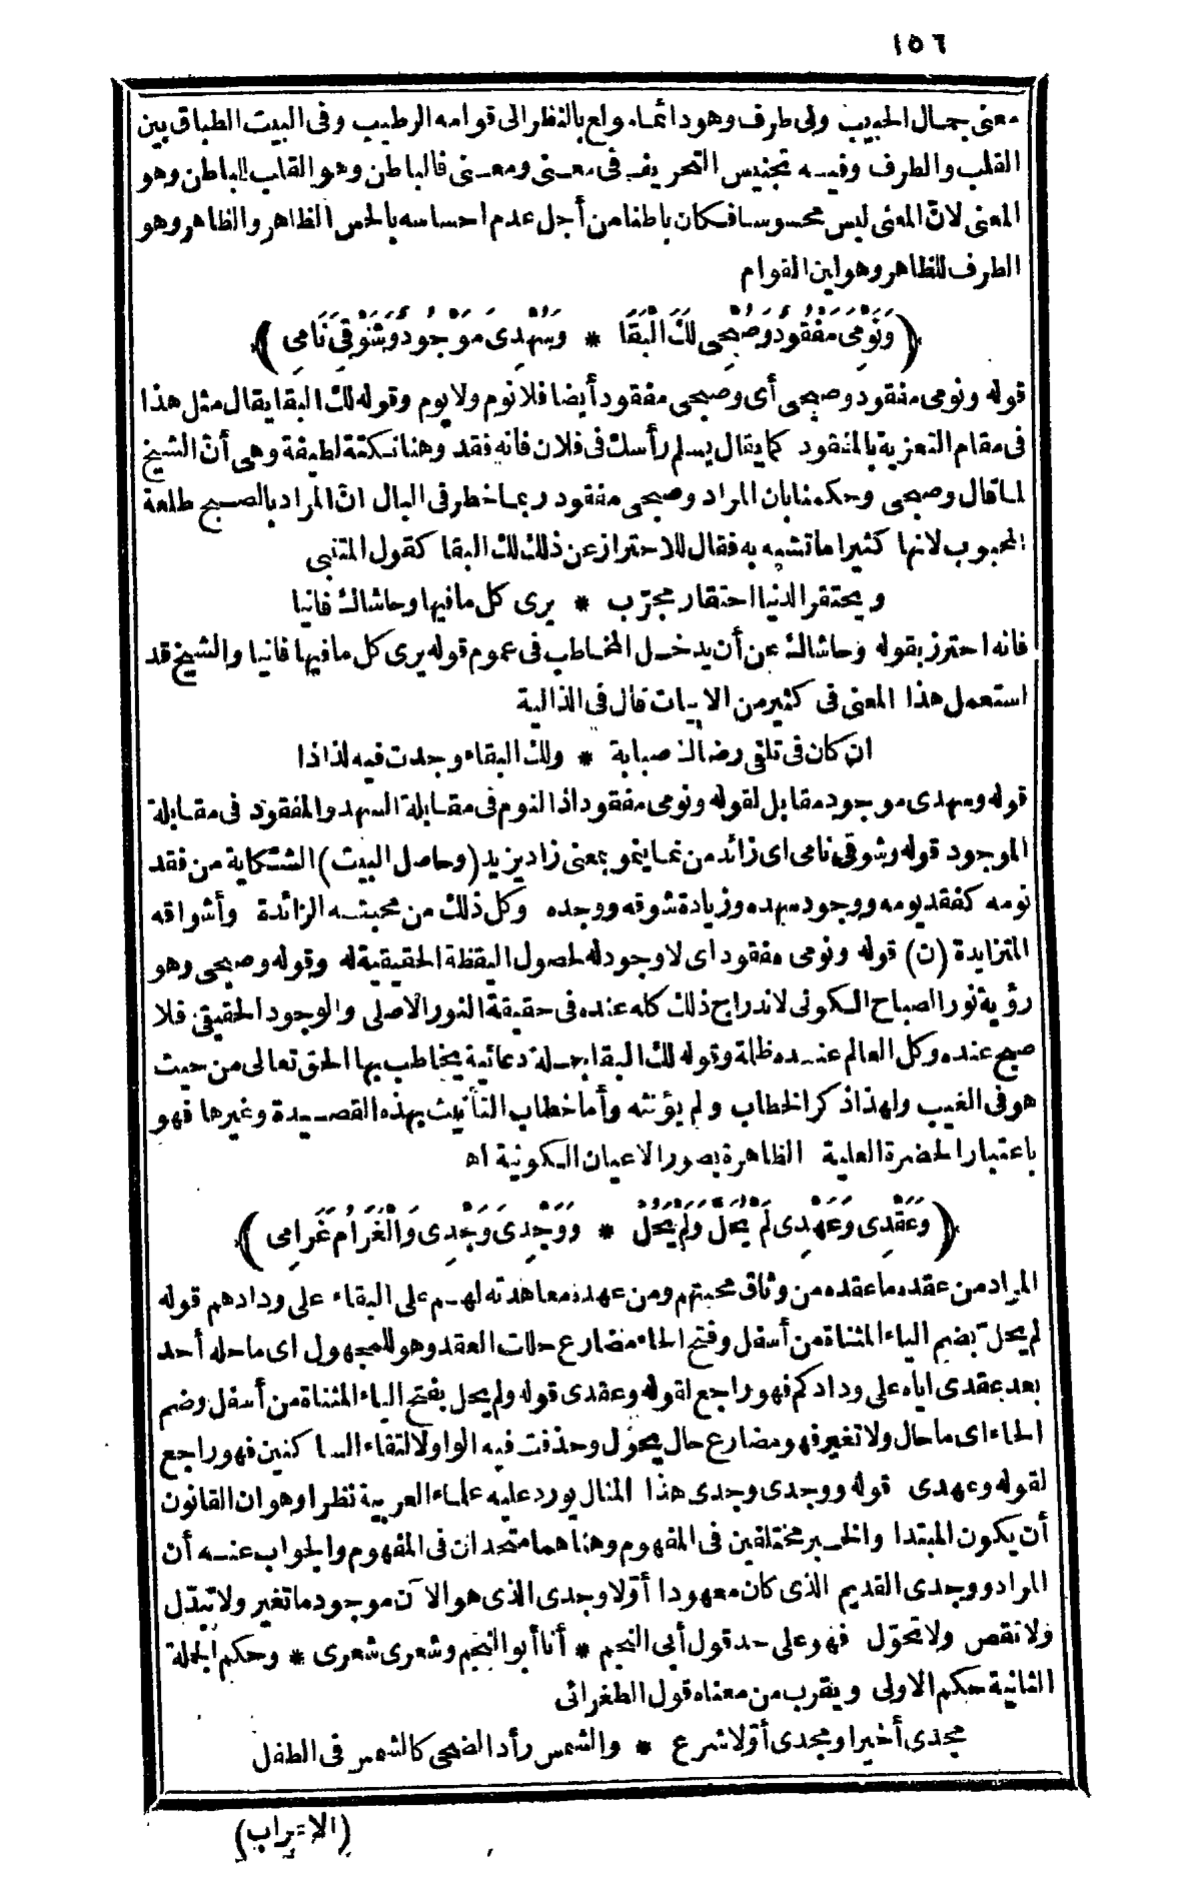 ١٥٦
معنى بجمال الحبيب ولى طرف وهو دائما مولع بالنظر الى قوامه الرطيب وفى البيت الطباق بين
القلب والطرف وفيه تجنيس التحريف فى معنى ومعنى فالباطن وهو القلب للباطن وهو
المعنى لانّ المعنى ليس محسوسا فكان باطنا من أجل عدم احساسه بالحس الظاهر والظاهر وهو
الطرف للظاهر وهو لين القوام
﴿وَنَوْمِى مَفْقُودٌ وَصُبْحِى لَكَ الْبَقَا * وَسُهْدِىَ مَوْجُودٌ وَشَوْقِىَ نَامِى﴾
قوله ونومى مفقود وصبحى أى وصبحى مفقود أيضا فلا نوم ولا يوم وقوله لك البقا يقال مثل هذا
فى مقام التعزية بالمفقود كما يقال يسلم رأسك فى فلان فانه فقد وهنا نكتة لطيفة وهى أنّ الشيخ
لما قال وصبحى وحكمنا بان المراد وصبحى مفقود ربما خطر فى البال انّ المراد بالصبح طلعة
المحبوب لانها كثيرا ما تشبه به فقال للاحتراز عن ذلك لك البقا كقول المتنبى
ويحتقر الدنيا احتقار مجرّب * يرى كل ما فيها وحاشاك فانيا
فانه احترز بقوله وحاشاك عن أن يدخل المخاطب فى عموم قوله يرى كل ما فيها فانيا والشيخ قد
استعمل هذا المعنى فى كثير من الابيات قال فى الذالية
ان كان فى تلفى رضاك صبابة * ولك البقاء وجدت فيه لذاذا
قوله وسهدى موجود مقابل لقوله ونومى مفقود اذ النوم فى مقابلة السهد والمفقود فى مقابلة
الموجود قوله وشوقى نامى اى زائد من نما ينمو بمعنى زاد يزيد (وحاصل البيت) الشكاية من فقد
نومه كفقد يومه ووجود سهده وزيادة شوقه ووجده وكل ذلك من محبته الزائدة وأشواقه
المتزايدة (ن) قوله ونومى مفقود اى لا وجود له لحصول اليقظة الحقيقية له وقوله وصبحى وهو
رؤية نور الصباح الكونى لاندراج ذلك كله عنده فى حقيقة النور الاصلى والوجود الحقيقى فلا
صبح عنده وكل العالم عنده ظلة وقوله لك البقا جملة دعائية يخاطب بها الحق تعالى من حيث
هو فى الغيب ولهذا ذكر الخطاب ولم يؤنثه وأما خطاب التأنيث بهذه القصيدة وغيرها فهو
باعتبار الحضرة العلية الظاهرة بصور الاعيان الكونية اه
﴿وَعَقْدِى وَعَهْدِى لَمْ يُحَلَّ وَلَمْ يَحُلْ * وَوَجْدِىَ وَجْدِى وَالْغَرَامُ غَرَامِى﴾
المراد من عقده ما عقده من وثاق محبتهم ومن عهده معاهدته لهم على البقاء على ودادهم قوله
لم يحلّ بضم الياء المثناة من أسفل وفتح الحاء مضارع حلات العقد وهو للمجهول اى ما حله أحد
بعد عقدى اياه على ودادكم فهو راجع لقوله وعقدى قوله ولم يحل بفتح الياء المثناة من أسفل وضم
الحاء اى ما حال ولا تغير فهو مضارع حال يحول وحذفت فيه الواو لالتقاء الساكنين فهو راجع
لقوله وعهدى قوله ووجدى وجدى هذا المثال يورد عليه علماء العربية نظرا وهو ان القانون
أن يكون المبتدا والخبر مختلفين فى المفهوم وهنا هما متحدان فى المفهوم والجواب عنه أن
المراد ووجدى القديم الذى كان معهودا أوّلا وجدى الذى هو الآن موجود ما تغير ولا تبدّل
ولا نقص ولا تحوّل فهو على حد قول أبى النجم * أنا أبو النجم وشعرى شعرى * وحكم الجملة
الثانية حكم الاولى ويقرب من معناه قول الطغرائى
مجدى أخيرا ومجدى أوّلا شرع * والشمس رأد الضحى كالشمس فى الطفل
(الاعراب)